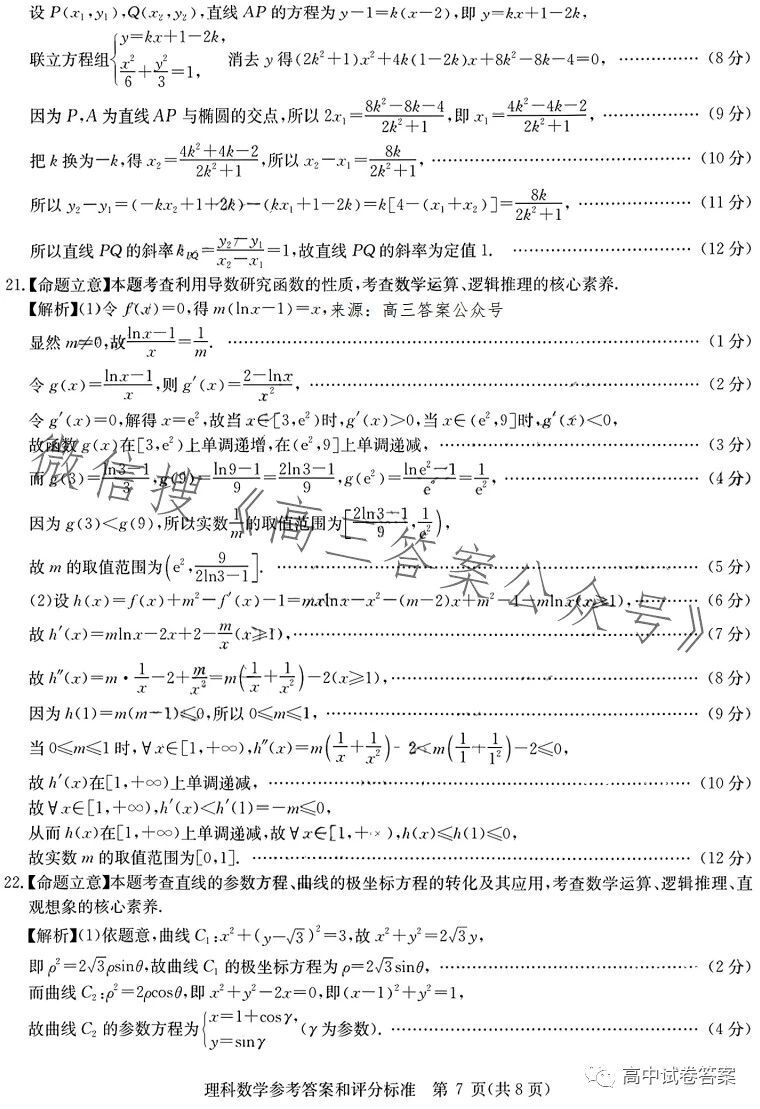 设 P(x₁,y₁),Q(x₂,y₂),直线 AP 的方程为 y-1=k(x-2),即 y=kx+1-2k,
联立方程组{y=kx+1-2k, x²/6+y²/3=1, 消去 y 得(2k²+1)x²+4k(1-2k)x+8k²-8k-4=0, ……………(8 分)
因为 P,A 为直线 AP 与椭圆的交点,所以 2x₁=(8k²-8k-4)/(2k²+1),即 x₁=(4k²-4k-2)/(2k²+1), ……………(9 分)
把 k 换为-k,得 x₂=(4k²+4k-2)/(2k²+1),所以 x₂-x₁=8k/(2k²+1), ……………(10 分)
所以 y₂-y₁=(-kx₂+1+2k)-(kx₁+1-2k)=k[4-(x₁+x₂)]=8k/(2k²+1), ……………(11 分)
所以直线 PQ 的斜率 k_PQ=(y₂-y₁)/(x₂-x₁)=1,故直线 PQ 的斜率为定值 1. ……………(12 分)
21.【命题立意】本题考查利用导数研究函数的性质,考查数学运算、逻辑推理的核心素养.
【解析】(1)令 f(x)=0,得 m(lnx-1)=x,来源：高三答案公众号
显然 m≠0,故(lnx-1)/x=1/m. ……………(1 分)
令 g(x)=(lnx-1)/x,则 g′(x)=(2-lnx)/x², ……………(2 分)
令 g′(x)=0,解得 x=e²,故当 x∈[3,e²)时,g′(x)>0,当 x∈(e²,9]时,g′(x)<0,
故函数 g(x)在[3,e²)上单调递增,在(e²,9]上单调递减, ……………(3 分)
而 g(3)=(ln3-1)/3,g(9)=(ln9-1)/9=(2ln3-1)/9,g(e²)=(lne²-1)/e²=1/e², ……………(4 分)
因为 g(3)<g(9),所以实数1/m的取值范围为[(2ln3-1)/9,1/e²),
故 m 的取值范围为(e²,9/(2ln3-1)]. ……………(5 分)
(2)设 h(x)=f(x)+m²-f′(x)-1=mxlnx-x²-(m-2)x+m²-1-mlnx(x≥1), ……………(6 分)
故 h′(x)=mlnx-2x+2-m/x(x≥1), ……………(7 分)
故 h″(x)=m·1/x-2+m/x²=m(1/x+1/x²)-2(x≥1), ……………(8 分)
因为 h(1)=m(m-1)≤0,所以 0≤m≤1, ……………(9 分)
当 0≤m≤1 时,∀x∈[1,+∞),h″(x)=m(1/x+1/x²)-2≤m(1/1+1/1²)-2≤0,
故 h′(x)在[1,+∞)上单调递减, ……………(10 分)
故∀x∈[1,+∞),h′(x)≤h′(1)=-m≤0,
从而 h(x)在[1,+∞)上单调递减,故∀x∈[1,+∞),h(x)≤h(1)≤0,
故实数 m 的取值范围为[0,1]. ……………(12 分)
22.【命题立意】本题考查直线的参数方程、曲线的极坐标方程的转化及其应用,考查数学运算、逻辑推理、直
观想象的核心素养.
【解析】(1)依题意,曲线 C₁:x²+(y-√3)²=3,故 x²+y²=2√3y,
即 ρ²=2√3ρsinθ,故曲线 C₁ 的极坐标方程为 ρ=2√3sinθ, ……………(2 分)
而曲线 C₂:ρ²=2ρcosθ,即 x²+y²-2x=0,即(x-1)²+y²=1,
故曲线 C₂ 的参数方程为{x=1+cosγ, y=sinγ (γ 为参数). ……………(4 分)
理科数学参考答案和评分标准 第 7 页(共 8 页)
高中试卷答案
微信搜《高三答案公众号》